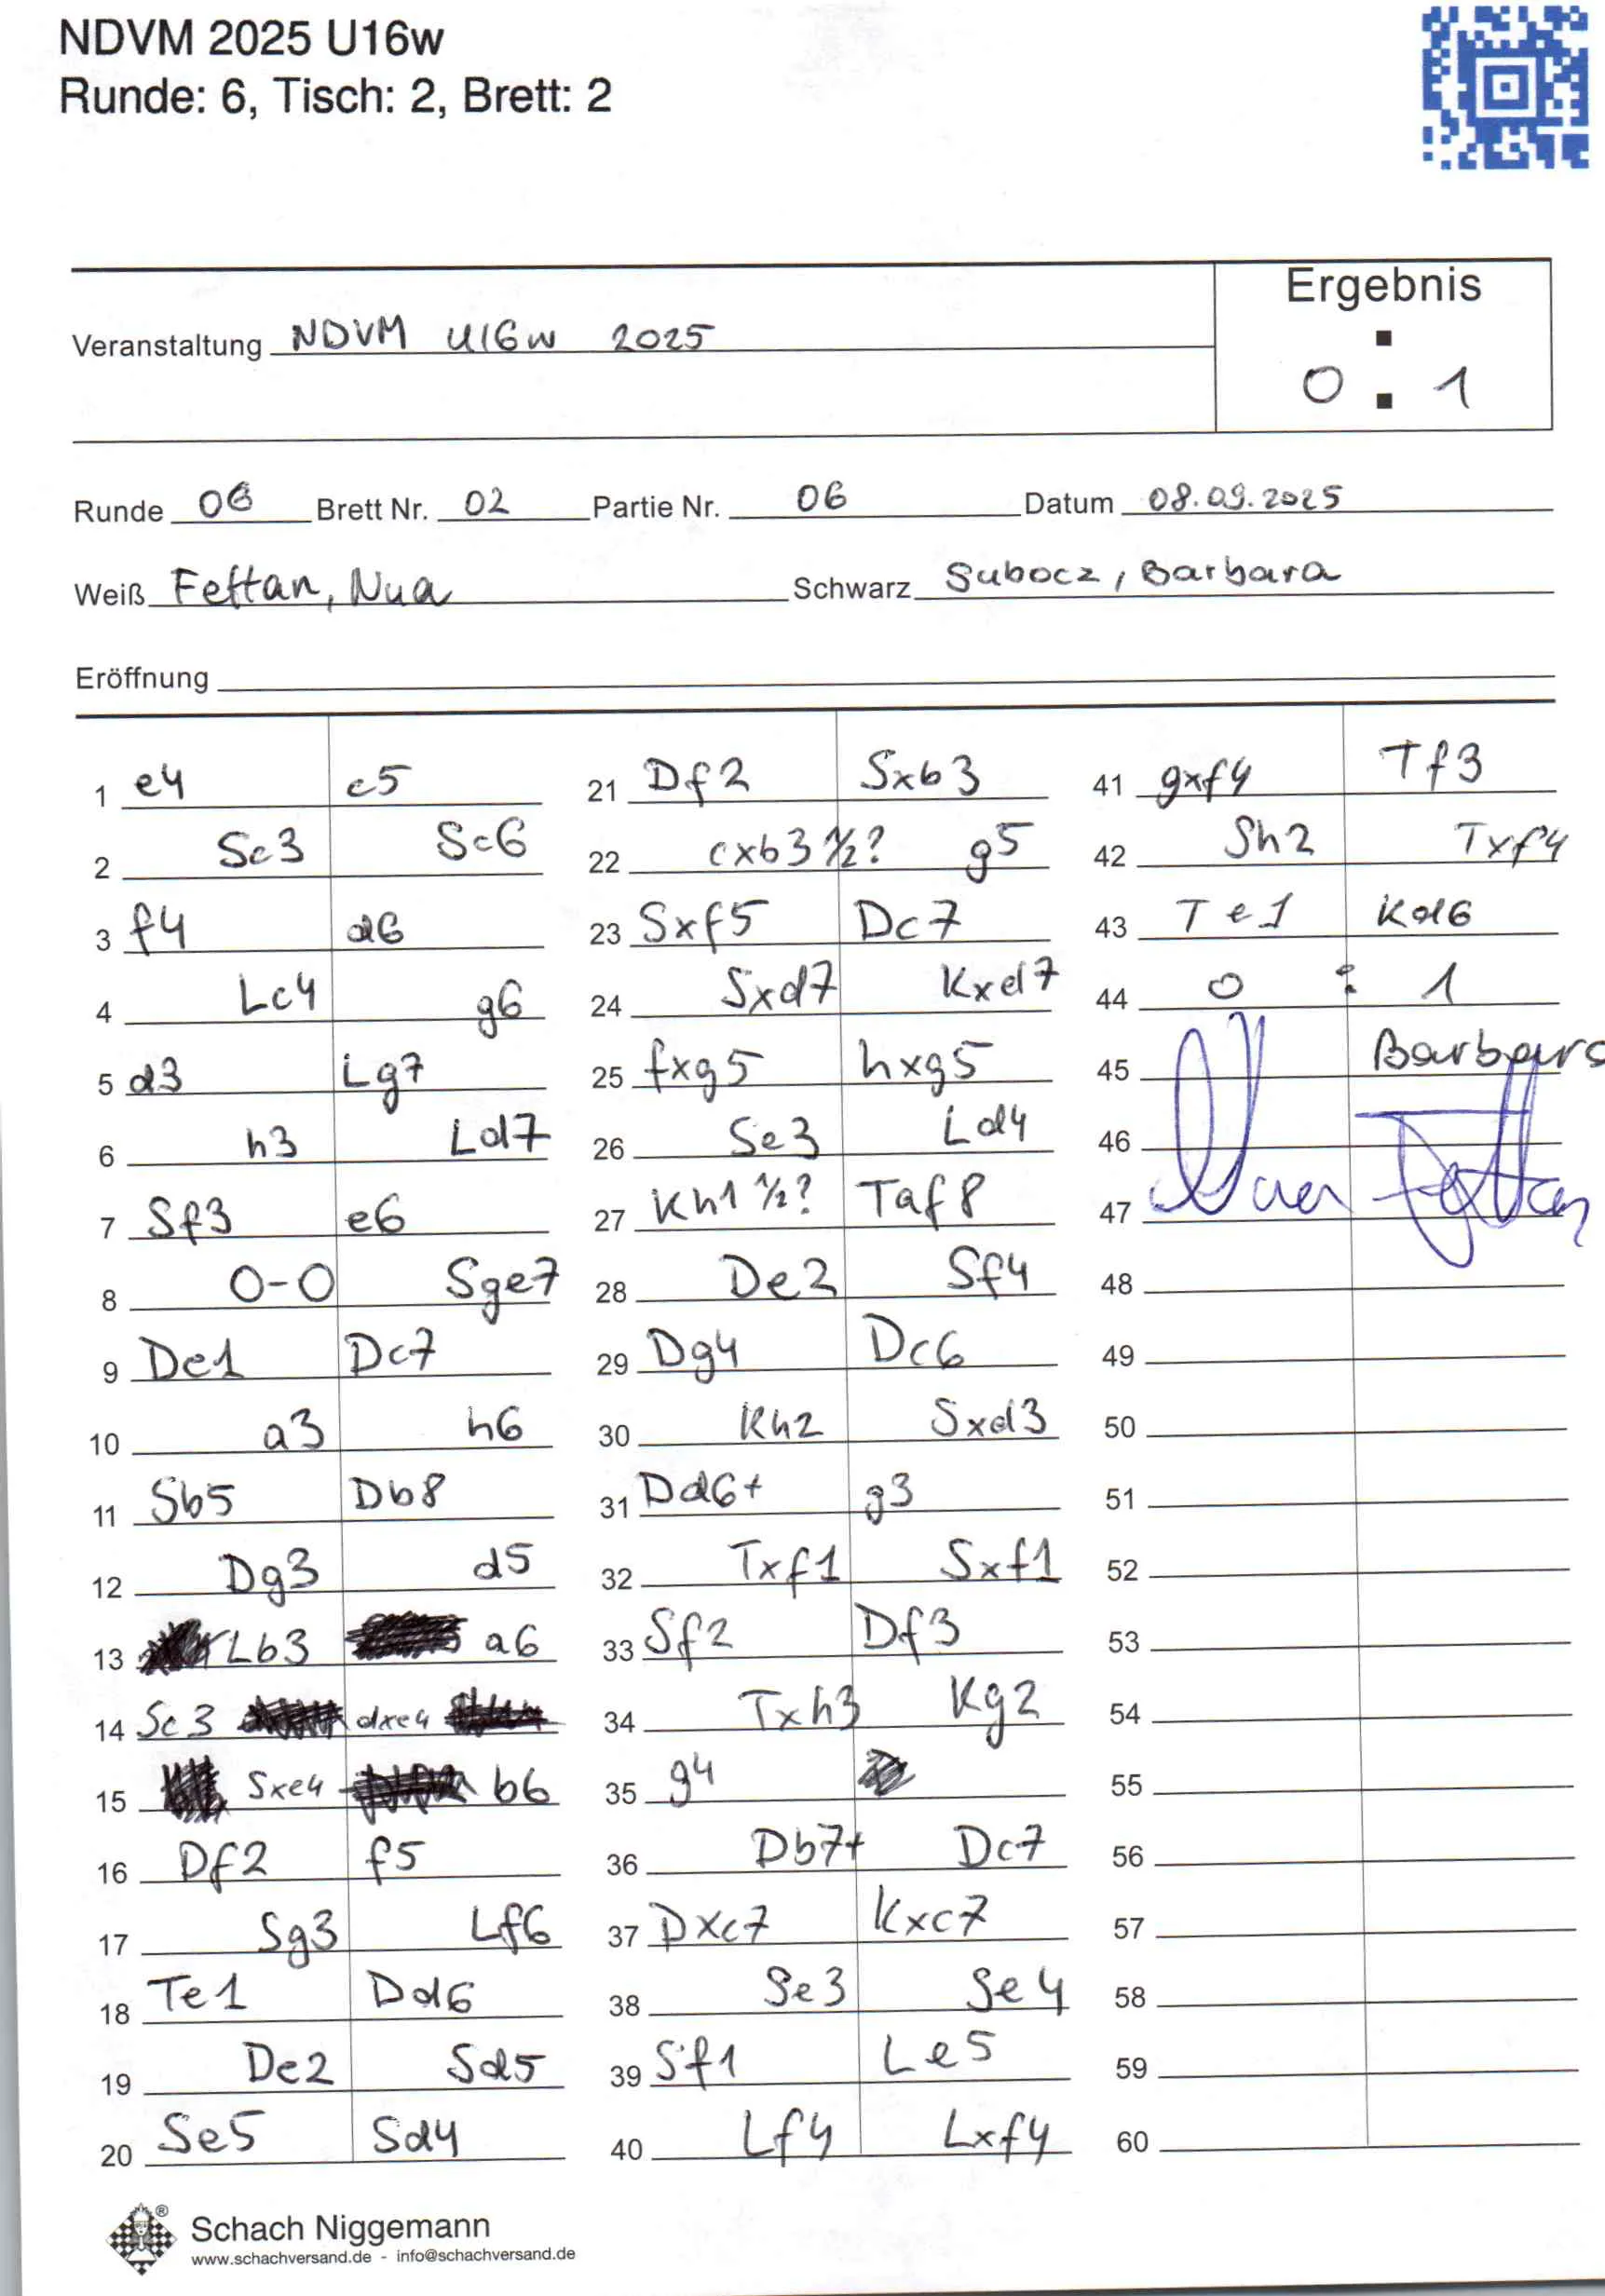 NDVM 2025 U16w
Runde: 6, Tisch: 2, Brett: 2
Ergebnis
Veranstaltung NDVM U16w 2025
0 : 1
Runde 06 Brett Nr. 02 Partie Nr. 06 Datum 08.09.2025
Weiß Fettan, Nua Schwarz Subocz, Barbara
Eröffnung
1 e4 c5
2 Sc3 Sc6
3 f4 d6
4 Lc4 g6
5 d3 Lg7
6 h3 Ld7
7 Sf3 e6
8 0-0 Sge7
9 De1 Dc7
10 a3 h6
11 Sb5 Db8
12 Dg3 d5
13 Lb3 a6
14 Sc3 dxe4
15 Sxe4 b6
16 Df2 f5
17 Sg3 Lf6
18 Te1 Dd6
19 De2 Sd5
20 Se5 Sd4
21 Df2 Sxb3
22 cxb3 ½? g5
23 Sxf5 Dc7
24 Sxd7 Kxd7
25 fxg5 hxg5
26 Se3 Ld4
27 Kh1 ½? Taf8
28 De2 Sf4
29 Dg4 Dc6
30 Kh2 Sxd3
31 Dd6+ g3
32 Txf1 Sxf1
33 Sf2 Df3
34 Txh3 Kg2
35 g4
36 Db7+ Dc7
37 Dxc7 Kxc7
38 Se3 Se4
39 Sf1 Le5
40 Lf4 Lxf4
41 gxf4 Tf3
42 Sh2 Txf4
43 Te1 Kd6
44 0 : 1
45 Barbara
46
47 Nua Fettan
48
49
50
51
52
53
54
55
56
57
58
59
60
Schach Niggemann
www.schachversand.de - info@schachversand.de